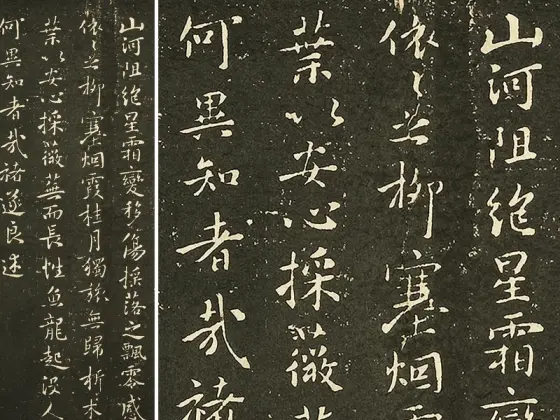 山河阻絶星霜變移傷摇落之飄零感
依〻之柳塞烟霞桂月獨旅無歸折木
葉以安心採薇蕪而長性魚龍起没人
何異知者哉褚遂良述
山河阻絶星霜變
依〻之柳塞烟
葉以安心採薇
何異知者哉褚